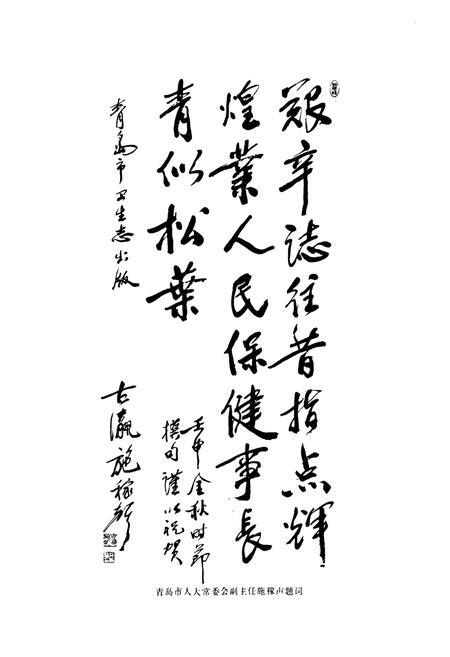 艰辛誌往昔指点輝
煌業人民保健事長
青似松葉
壬申金秋时节
撰句謹以祝贺
青島市卫生志出版
古瀛施稼声
青岛市人大常委会副主任施稼声题词